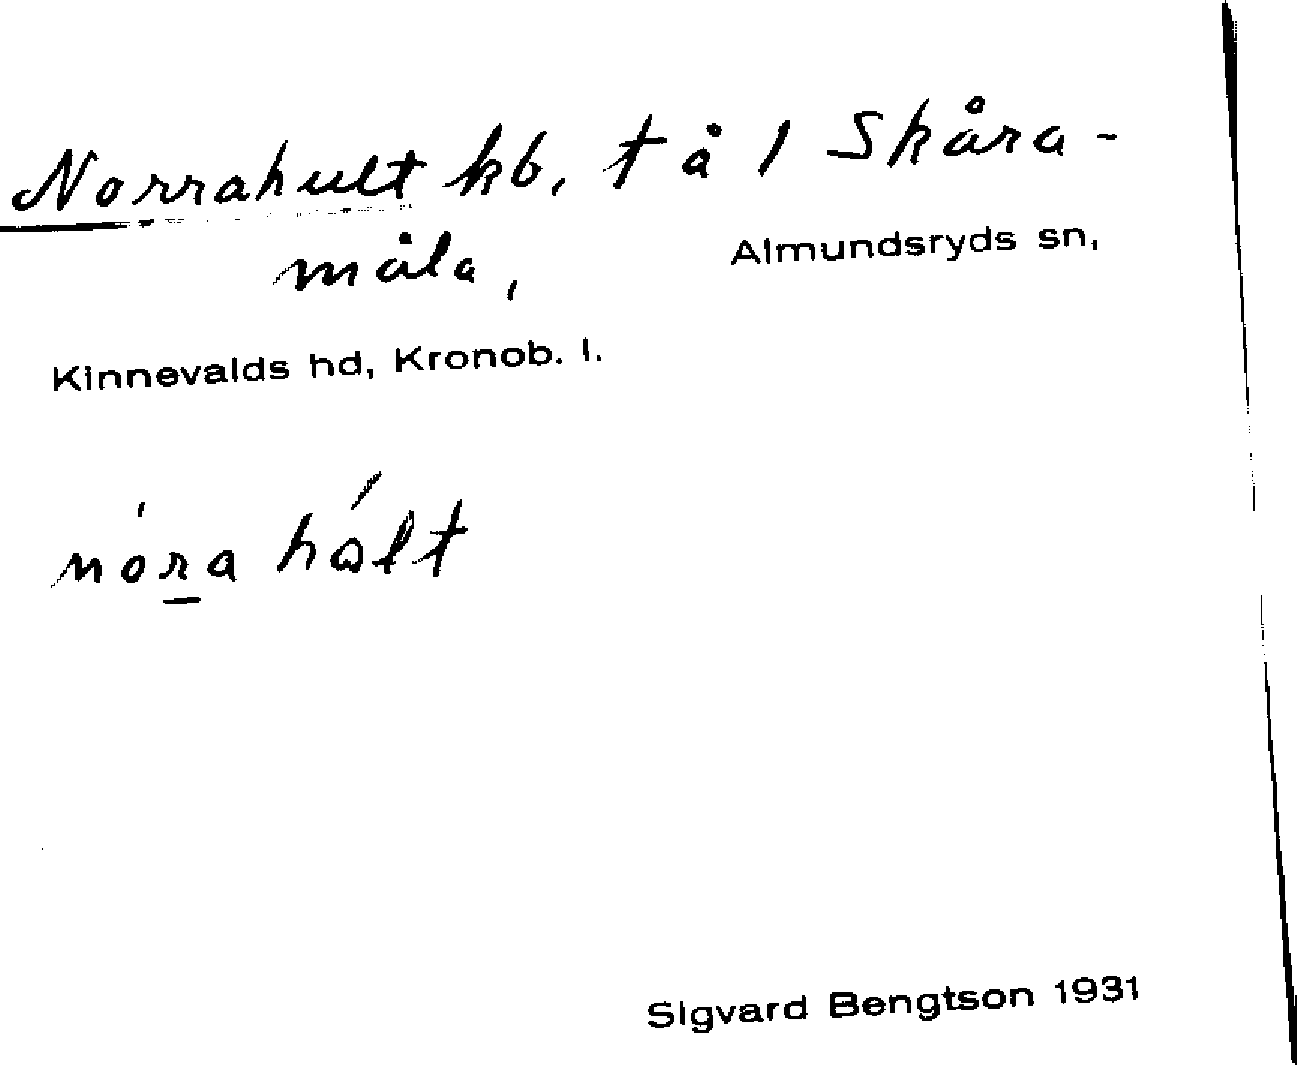 Norrahult kb, t å 1 Skåra-
måla, Almundsryds sn,
Kinnevalds hd, Kronob. l.
nóra hált
Sigvard Bengtson 1931